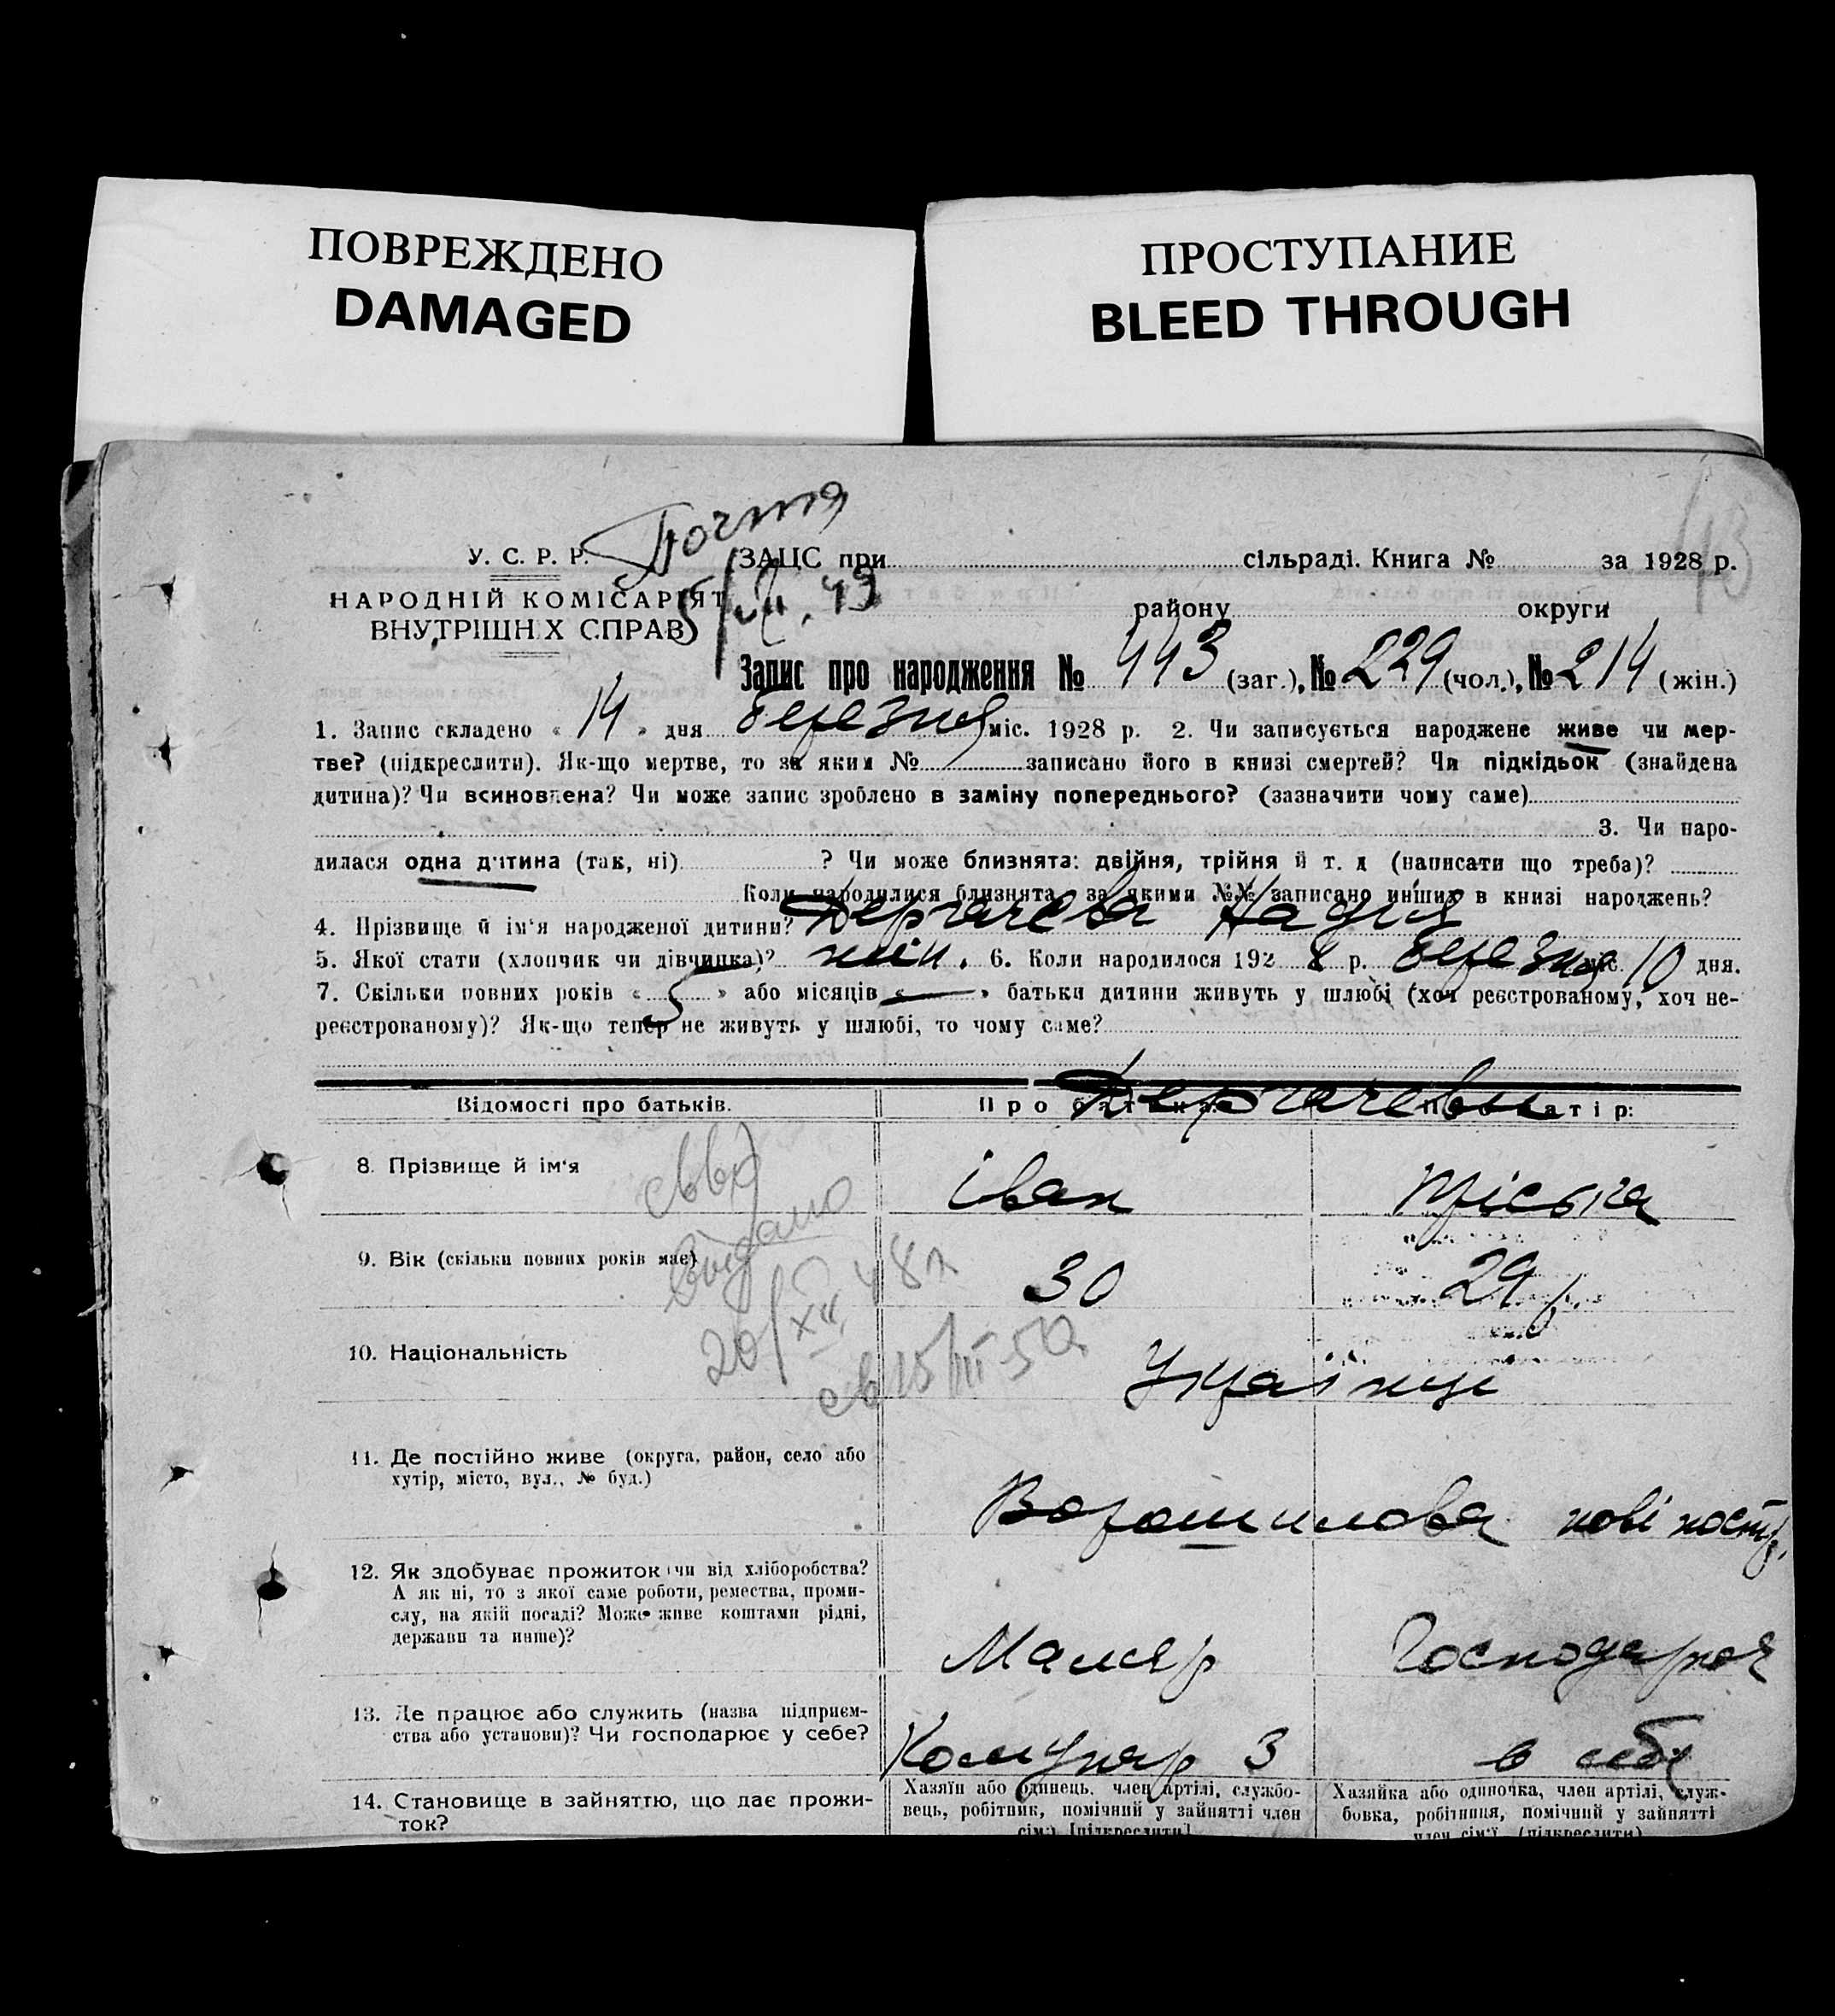 ПОВРЕЖДЕНО
DAMAGED
ПРОСТУПАНИЕ
BLEED THROUGH
Почта
43
У. С. Р. Р.
НАРОДНІЙ КОМІСАРІЯТ
ВНУТРІШНІХ СПРАВ
ЗАЦС при сільраді. Книга № за 1928 р.
району округи
Запис про народження № 443 (заг.), № 229 (чол.), № 214 (жін.)
1. Запис складено « 14 » дня березня міс. 1928 р. 2. Чи записується народжене живе чи мер-
тве? (підкреслити). Як-що мертве, то за яким № записано його в книзі смертей? Чи підкідьок (знайдена
дитина)? Чи всиновлена? Чи може запис зроблено в заміну попереднього? (зазначити чому саме)
3. Чи наро-
дилася одна дитина (так, ні) ? Чи може близнята: двійня, трійня й т. д (написати що треба)?
Коли народилися близнята, за якими №№ записано инших в книзі народжень?
4. Прізвище й ім'я народженої дитини? Дергачева Надія
5. Якої стати (хлопчик чи дівчинка)? жін. 6. Коли народилося 192 8 р. березня міс. 10 дня.
7. Скільки повних років « 5 » або місяців « — » батьки дитини живуть у шлюбі (хоч реєстрованому, хоч не-
реєстрованому)? Як-що тепер не живуть у шлюбі, то чому саме?
Дергачевы
Відомості про батьків. Про батька: Про матір:
8. Прізвище й ім'я Іван Пріська
9. Вік (скільки повних років має) 30 29 р.
Видано
20/XII 48
10. Національність Українці
св 15/III-50
11. Де постійно живе (округа, район, село або
хутір, місто, вул., № буд.)
Ворошилова нові постр.
12. Як здобуває прожиток (чи від хліборобства?
А як ні, то з якої саме роботи, ремества, проми-
слу, на якій посаді? Може живе коштами рідні,
держави та инше)?
Маляр Господарка
13. Де працює або служить (назва підприєм-
ства або установи)? Чи господарює у себе?
Комунар 3 в себе
14. Становище в зайняттю, що дає прожи-
ток?
Хазяїн або одинець, член артілі, службо-
вець, робітник, помічний у зайнятті член
сім'ї [підкреслити]
Хазяйка або одиночка, член артілі, служ-
бовка, робітниця, помічний у зайнятті
член сім'ї (підкреслити)